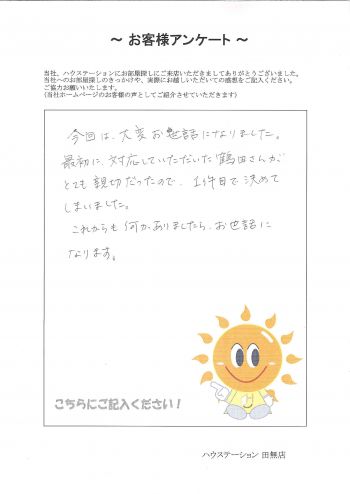 ～ お客様アンケート ～
当社、ハウステーションにお部屋探しにご来店いただきましてありがとうございました。
当社へのお部屋探しのきっかけや、実際にお越しいただいての感想をご記入ください。
ご協力お願いいたします。
(当社ホームページのお客様の声としてご紹介させていただきます)
今回は、大変お世話になりました。
最初に、対応していただいた鶴田さんが
とても親切だったので、1件目で決めて
しまいました。
これからも何かありましたら、お世話に
なります。
こちらにご記入ください！
ハウステーション 田無店